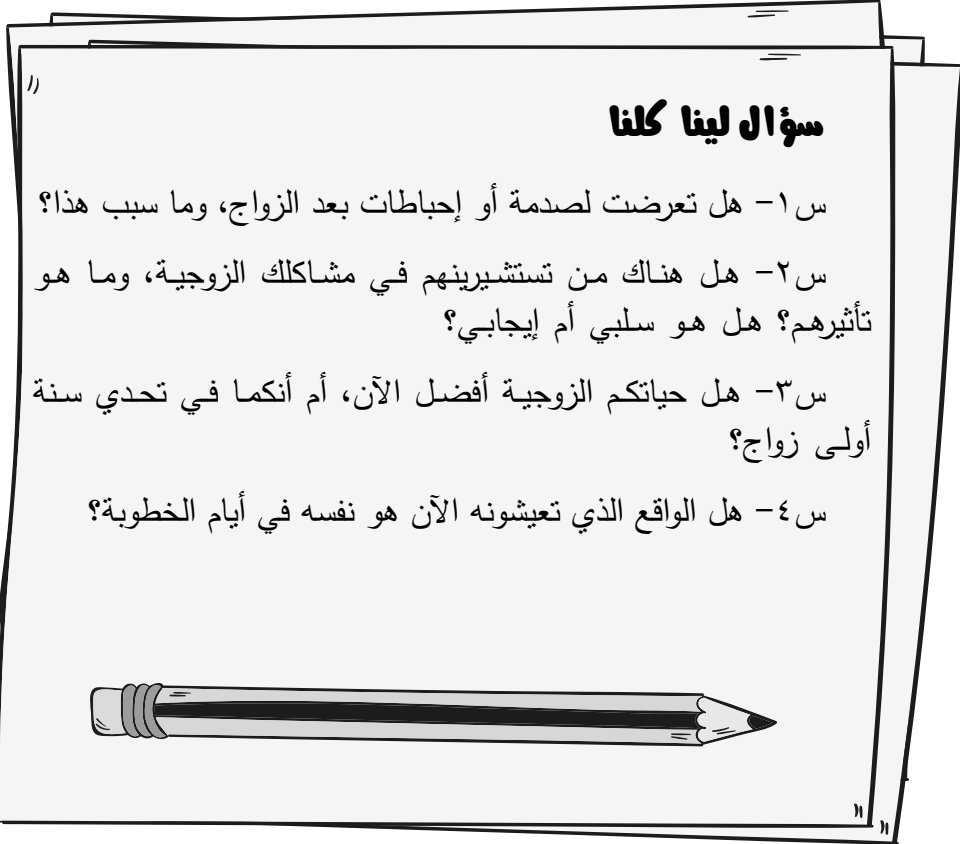 سؤال لينا كلنا
س١- هل تعرضت لصدمة أو إحباطات بعد الزواج، وما سبب هذا؟
س٢- هل هناك من تستشيرينهم في مشاكلك الزوجية، وما هو
تأثيرهم؟ هل هو سلبي أم إيجابي؟
س٣- هل حياتكم الزوجية أفضل الآن، أم أنكما في تحدي سنة
أولى زواج؟
س٤- هل الواقع الذي تعيشونه الآن هو نفسه في أيام الخطوبة؟